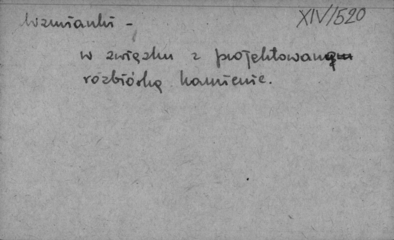 XIV/520
Wzmianki -
w związku z projektowaną
rozbiórką kamienic.